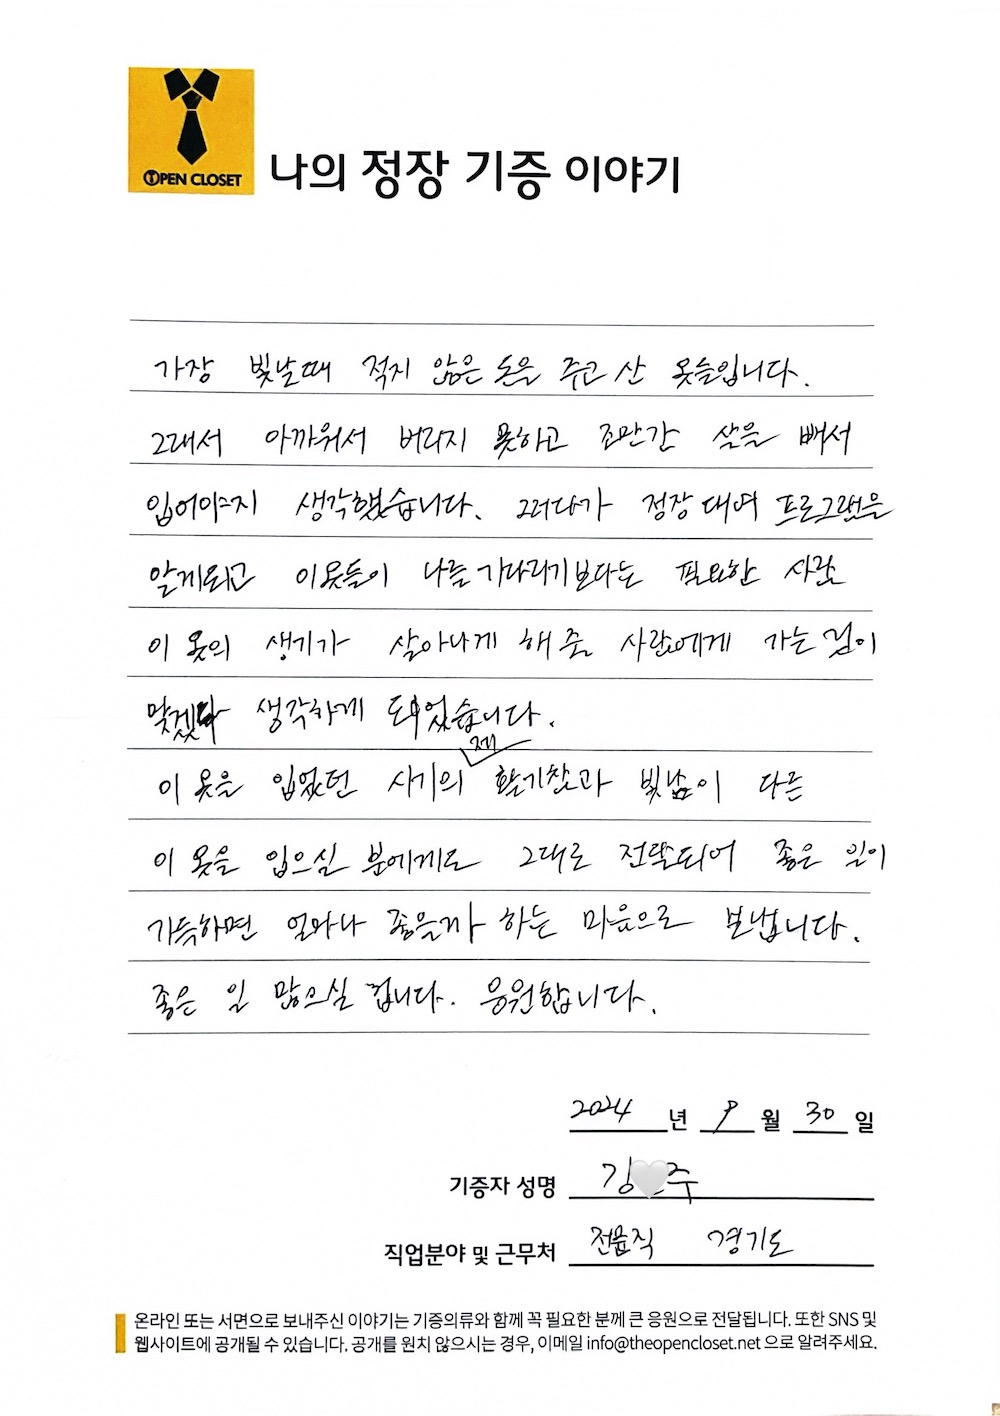 OPEN CLOSET
나의 정장 기증 이야기
가장 빛날때 적지 않은 돈을 주고 산 옷들입니다.
그래서 아까워서 버리지 못하고 조만간 살을 빼서
입어야지 생각했습니다. 그러다가 정장 대여 프로그램을
알게되고 이옷들이 나를 기다리기보다는 필요한 사람
이 옷의 생기가 살아나게 해 줄 사람에게 가는 것이
맞겠다 생각하게 되었습니다.
제
이 옷을 입었던 시기의 활기참과 빛남이 다른
이 옷을 입으실 분에게도 그대로 전달되어 좋은 일이
가득하면 얼마나 좋을까 하는 마음으로 보냅니다.
좋은 일 많으실 겁니다. 응원합니다.
2024 년 9 월 30 일
기증자 성명 김 주
직업분야 및 근무처 전문직 경기도
온라인 또는 서면으로 보내주신 이야기는 기증의류와 함께 꼭 필요한 분께 큰 응원으로 전달됩니다. 또한 SNS 및
웹사이트에 공개될 수 있습니다. 공개를 원치 않으시는 경우, 이메일 info@theopencloset.net 으로 알려주세요.